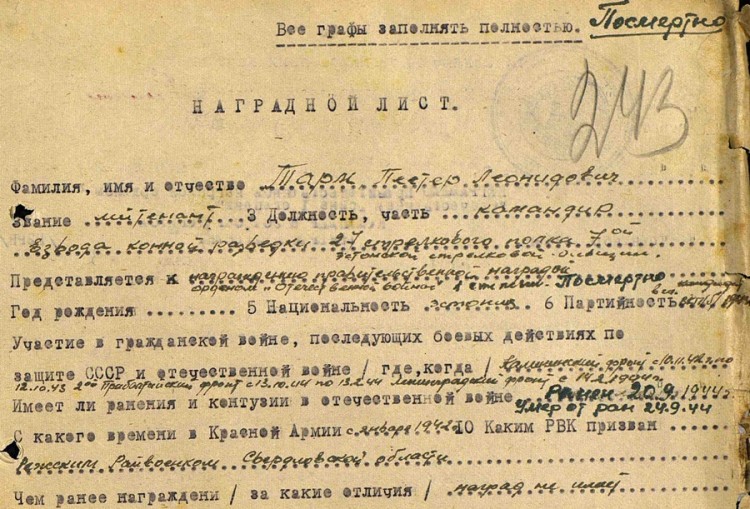 Все графы заполнять полностью. Посмертно
243
НАГРАДНОЙ ЛИСТ.
Фамилия, имя и отчество Тарм Пеетер Леонидович
Звание лейтенант 3 Должность, часть командир
взвода конной разведки 27 стрелкового полка 7ой
эстонской стрелковой дивизии.
Представляется к награждению правительственной наградой
орденом "Отечественной войны" 1 степени. Посмертно
Год рождения ......... 5 Национальность эстонец 6 Партийность
Участие в гражданской войне, последующих боевых действиях по
защите СССР и отечественной войне / где, когда / Калининский фронт с 10.11.42 г. по
12.10.43 2ой Прибалтийский фронт с 13.10. по 13.2.44 Ленинградский фронт с 14.2.
Имеет ли ранения и контузии в отечественной войне Ранен 20.9.1944 г.
Умер от ран 24.9.44
С какого времени в Красной Армии с января 1942 10 Каким РВК призван
Режским Райвоенком Свердловской области
Чем ранее награждени / за какие отличия / наград не имеет